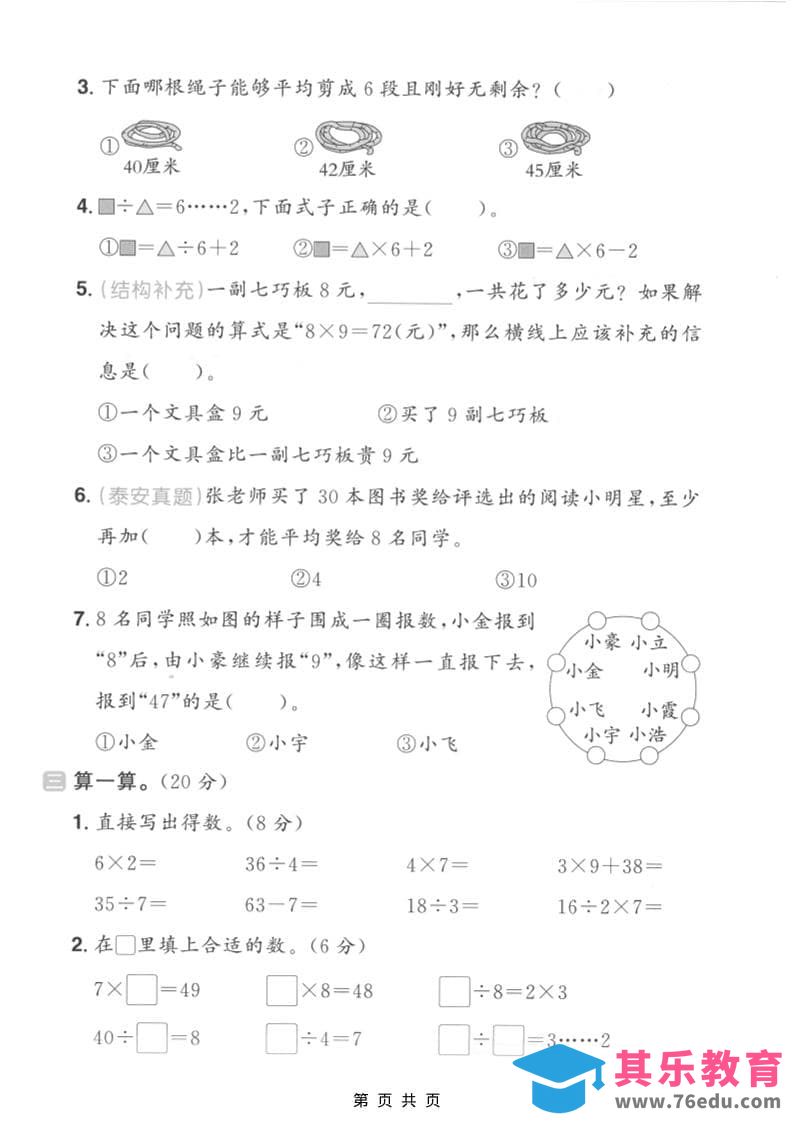 3. 下面哪根绳子能够平均剪成6段且刚好无剩余？（　　）
①　②　③
40厘米　42厘米　45厘米
4. ■÷△=6……2，下面式子正确的是（　　）。
①■=△÷6+2　②■=△×6+2　③■=△×6-2
5. (结构补充)一副七巧板8元，________，一共花了多少元？如果解
决这个问题的算式是“8×9=72(元)”，那么横线上应该补充的信
息是（　　）。
①一个文具盒9元　②买了9副七巧板
③一个文具盒比一副七巧板贵9元
6. (泰安真题)张老师买了30本图书奖给评选出的阅读小明星，至少
再加（　　）本，才能平均奖给8名同学。
①2　②4　③10
7. 8名同学照如图的样子围成一圈报数，小金报到
“8”后，由小豪继续报“9”，像这样一直报下去，
报到“47”的是（　　）。
①小金　②小宇　③小飞
小豪 小立
小金　小明
小飞　小霞
小宇 小浩
三 算一算。（20分）
1. 直接写出得数。（8分）
6×2=　36÷4=　4×7=　3×9+38=
35÷7=　63-7=　18÷3=　16÷2×7=
2. 在□里填上合适的数。（6分）
7×□=49　□×8=48　□÷8=2×3
40÷□=8　□÷4=7　□÷□=3……2
其乐教育
www.76edu.com
第 页 共 页